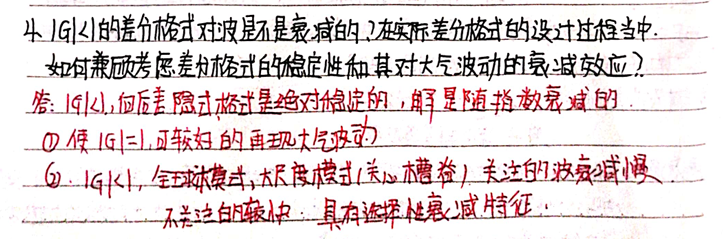 4. |G|<1的差分格式对波是不是衰减的?在实际差分格式的设计过程当中.
如何兼顾考虑差分格式的稳定性和其对大气波动的衰减效应?
答: |G|<1, 向后差隐式格式是绝对稳定的, 解是随指数衰减的.
① 使|G|=1, 可较好的再现大气波动
②. |G|<1, 全球模式, 大尺度模式(关心槽脊) 关注的波衰减慢
不关注的较快. 具有选择性衰减特征.